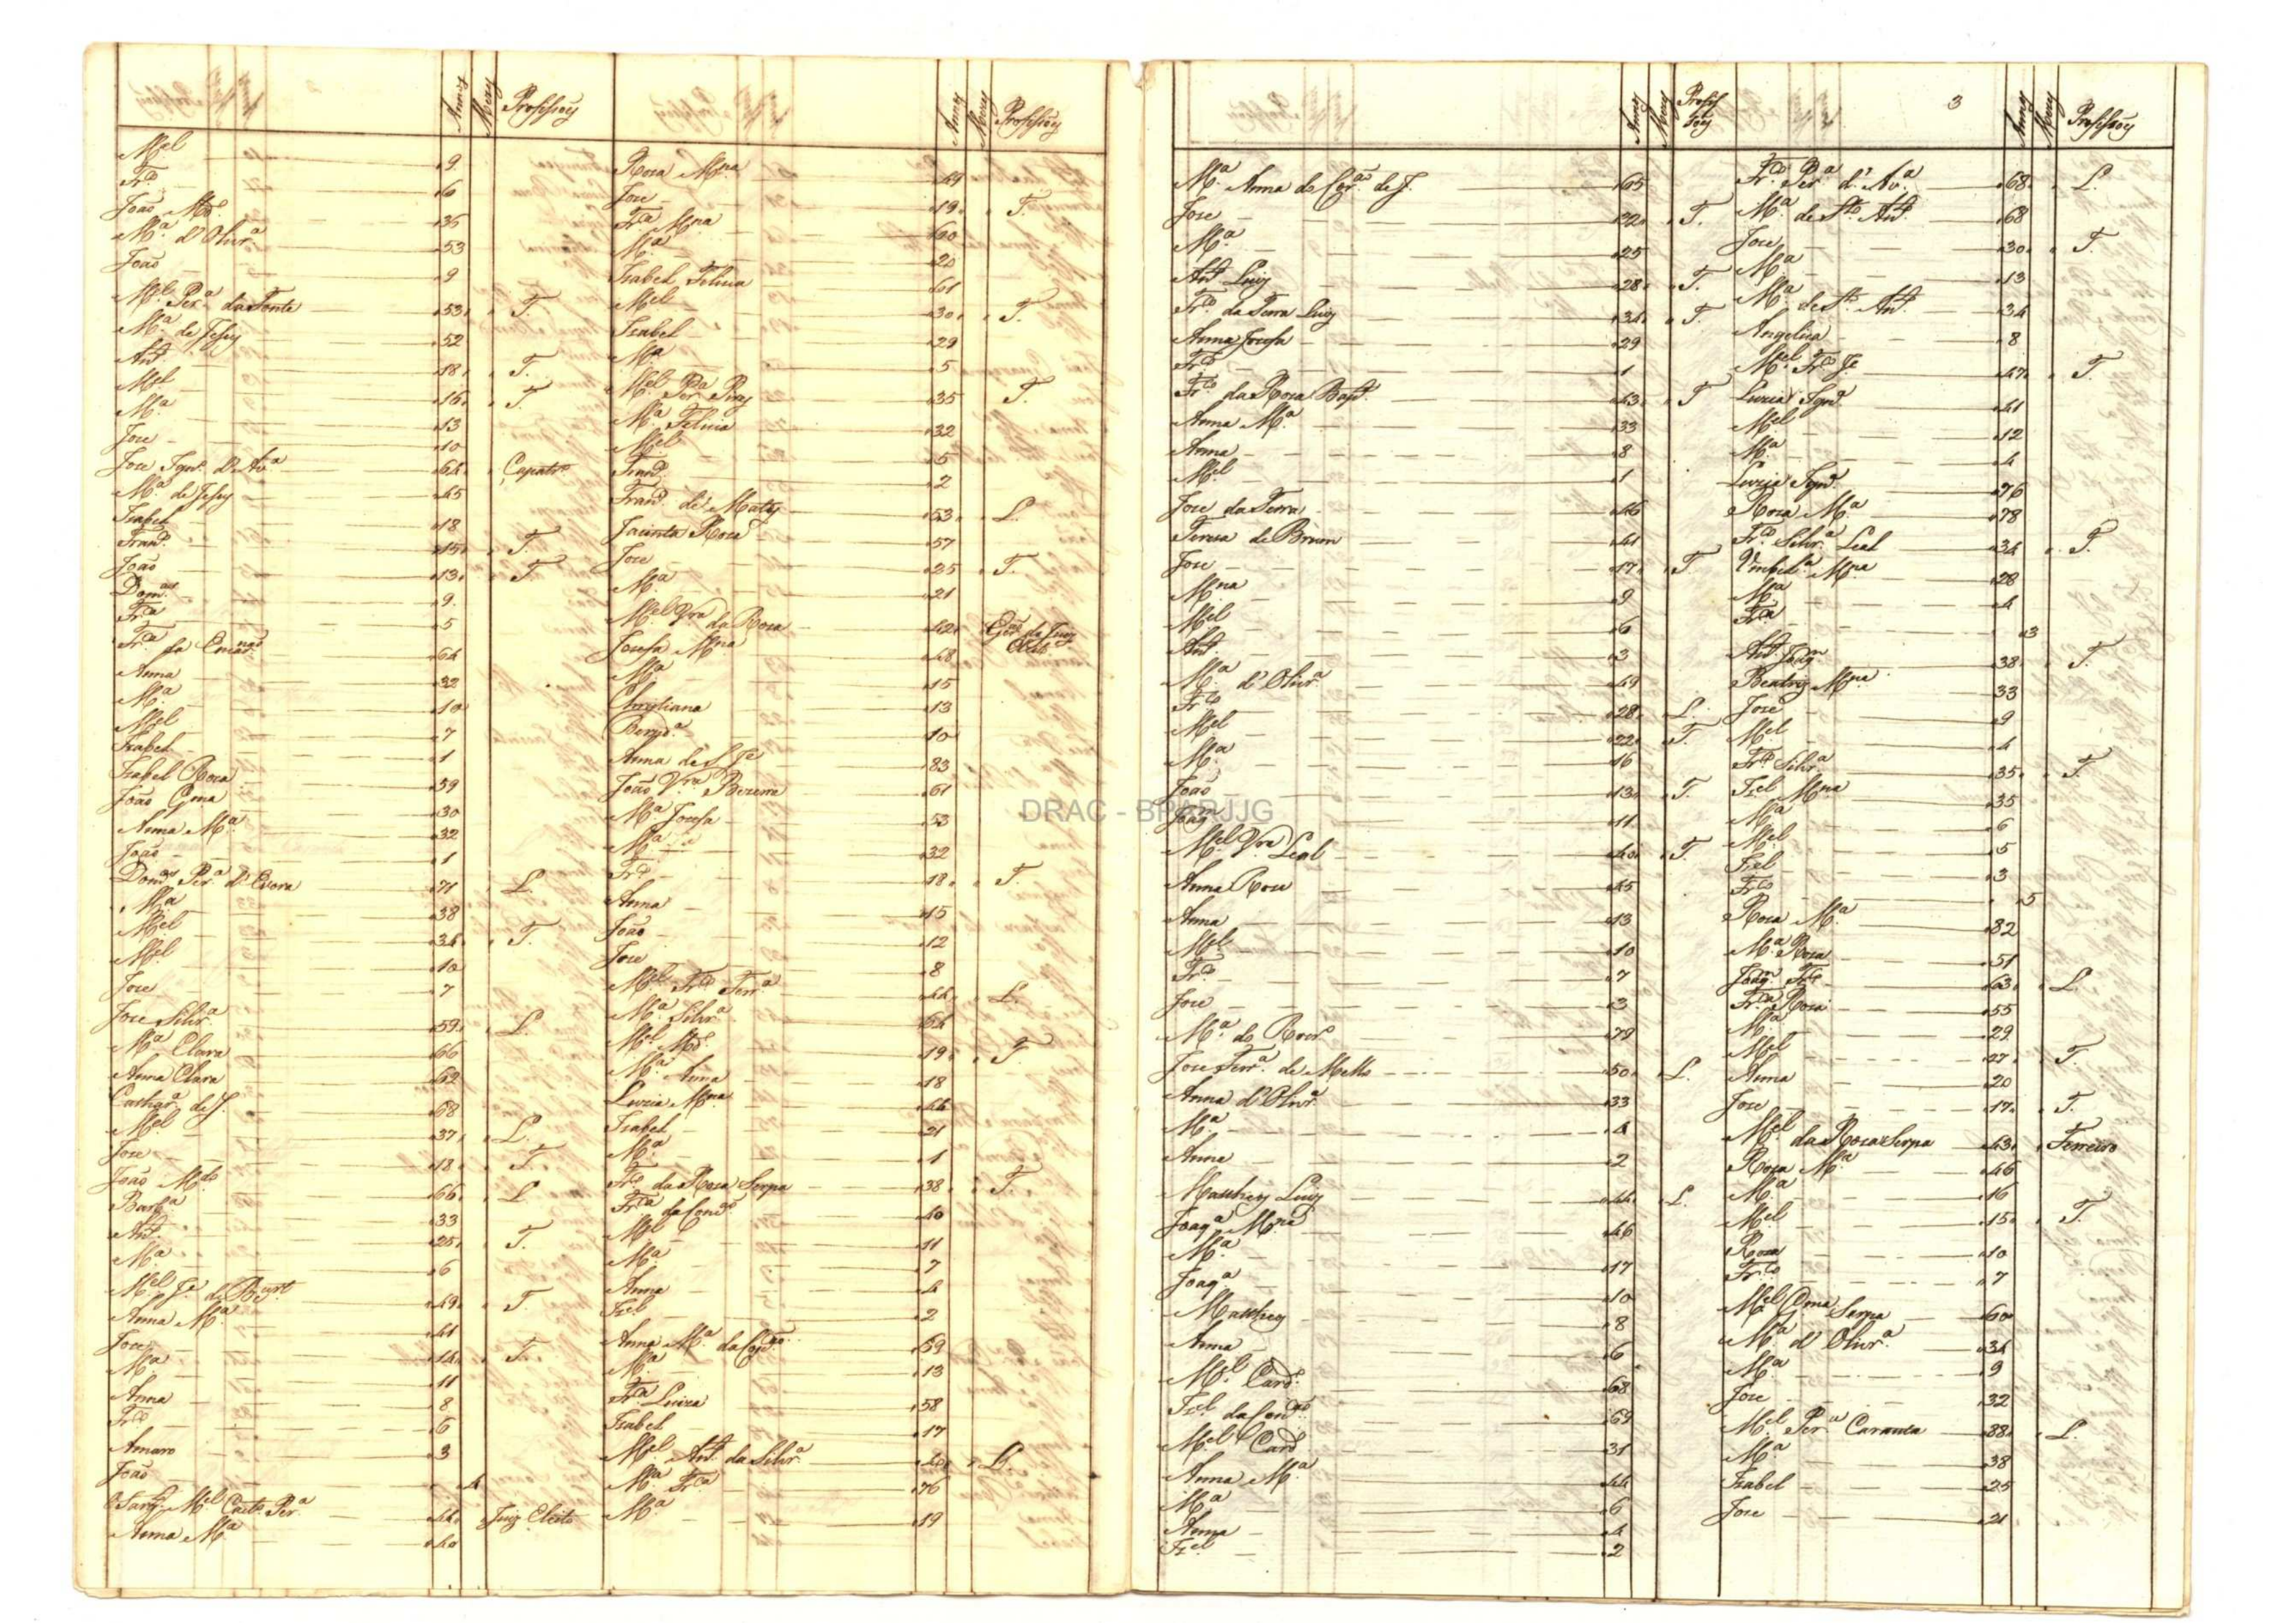 Annos Mezes Profissoẽs
Mel 9
Frco 6
João Mdo 36
Ma d'Olivra 53
João 9
Mel Pera da Fonte 53 T.
Ma de Jesus 52
Anto 18 T.
Mel 16 T.
Ma 13
Jose 10
Jose Ignco d'Ava 64 Capatro
Ma de Jesus 45
Izabel 18
Franco 15 T.
João 13 T
Domos 9
Frca 5
Frca da Encarnao 64
Anna 32
Ma 10
Mel 7
Izabel 1
Izabel Rosa 59
João Gma 30
Anna Ma 32
João 1
Domos Pera d'Evora 71 L.
Ma 38
Mel 34 T.
Mel 10
Jose 7
Jose Silvra 59 L
Ma Clara 66
Anna Clara 62
Cathara de J. 68
Mel 37 L.
Jose 18 T.
João Mdo 66 L
Barba 33
Anto 25 T.
Ma 6
Mel Je de Bu 49 T.
Anna Ma 41
Jose 14 T.
Ma 11
Anna 8
Frco 6
Amaro 3
João 4
Sargto Mel Caeto Pera 44 Juiz Eleito
Anna Ma 40
Annos Mezes Profissoẽs
Rosa Mna 49
Jose 19 T.
Frca Mna 60
Ma 20
Izabel Felicia 61
Mel 30 T.
Izabel 29
Ma 5
Mel Pera Pires 35 T.
Ma Felicia 32
Mel 5
Franco 2
Franco de Mattos 53 L.
Jacinta Rosa 57
Jose 25 T.
Ma 21
Mel Vra da Rosa 42 Escão do Juiz Eleito
Josefa Mna 48
Ma 15
Christiana 13
Bernda 10
Anna de S. Je 83
João Vra Bezerra 61
Ma Josefa 53
Ma 32
Frco 18 T.
Anna 15
João 12
Jose 8
Mel Frco Ferra 44 L.
Ma Silvra 64
Mel Mdo 19 T.
Ma Anna 18
Luzia Mna 44
Izabel 21
Ma 1
Frco da Rosa Serpa 38 T
Frca da Conco 40
Mel 11
Ma 7
Anna 4
Izel 2
Anna Ma da Conco 69
Ma 13
Frca Luiza 58
Izabel 17
Mel Anto da Silvra 40 L.
Ma Frca 76
Ma 19
Annos Mezes Profissoẽs
Ma Anna do Coro de J. 65
Jose 22 T.
Ma 25
Anto Luiz 28 T.
Frco da Terra Luiz 34 T
Anna Josefa 29
Frco 1
Frco da Rosa Bapta 43 T
Anna Ma 33
Anna 8
Mel 1
Jose da Terra 46
Teresa de Brum 41
Jose 17 T
Mna 9
Mel 6
Anto 3
Ma d'Olivra 49
Frco 28 L.
Mel 22 T.
Ma 16
João 13 T.
Joaqm 11
Mel Vra Leal 40 T.
Anna Rosa 45
Anna 13
Mel 10
Frco 7
Jose 3
Ma do Rosro 78
Jose Ferra de Mello 50 L.
Anna d'Olivra 33
Ma 4
Anna 2
Matheus Luiz 44 L.
Joaqa Mna 46
Ma 17
Joaqa 10
Matheus 8
Anna 6
Mel Cardo 68
Izel da Conco 69
Mel Cardo 31
Anna Ma 44
Ma 6
Anna 4
Izel 2
3
Annos Mezes Profissoẽs
Frco Pera d'Ava 68 L.
Ma de Sto Anto 68
Jose 30 T.
Ma 13
Ma de Sto Anto 34
Angelica 8
Mel Frco Je 47 T.
Luzia Ignca 41
Mel 12
Ma 4
Luzia Ignca 76
Rosa Ma 78
Frco Silvra Leal 34 T.
Umbela Mna 28
Ma 4
Frca 3
Anto Joaqm 38 T.
Beatriz Mna 33
Jose 9
Mel 4
Frco Silvra 35 T.
Izel Mna 35
Ma 6
Mel 5
Izel 3
Frco 5
Rosa Ma 82
Ma Rosa 51
Joaqm Frco 63 L.
Frca Rosa 55
Ma 29
Mel 27 T.
Anna 20
Jose 17 T.
Mel da Rosa Serpa 43 Ferreiro
Rosa Ma 46
Ma 16
Mel 15 T.
Rosa 10
Frco 7
Mel Gma Serpa 60
Ma d'Olivra 34
Ma 9
Jose 32
Mel Pera Caranta 88 L.
Ma 38
Izabel 25
Jose 21
DRAC - BPARJJG